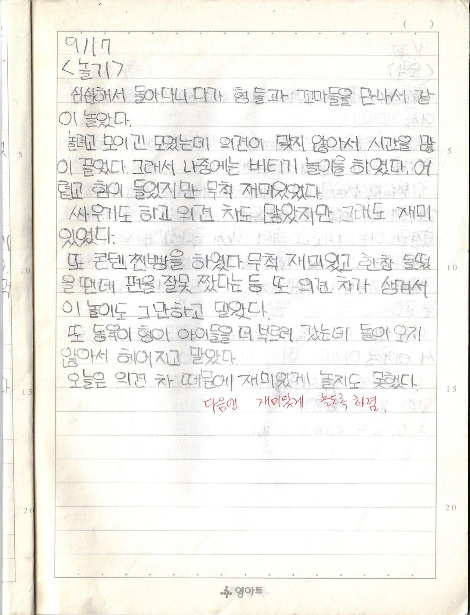 9/17
<놀기>
심심해서 돌아다니다가 형들과 꼬마들을 만나서 같
이 놀았다.
놀려고 모이긴 모였는데 의견이 맞지 않아서 시간을 많
이 끌었다. 그래서 나중에는 버티기 놀이를 하였다. 어
렵고 힘이 들었지만 무척 재미있었다.
싸우기도 하고 의견 차도 많았지만 그래도 재미
있었다.
또 콘텐 찐빵을 하였다. 무척 재미있고 한창 들떴
을 땐데 편을 잘못 짰다는 등 또 의견 차가 생겨서
이 놀이도 그만하고 말았다.
또 동욱이 형이 아이들을 더 부르러 갔는데 돌아오지
않아서 헤어지고 말았다.
오늘은 의견 차 때문에 재미있게 놀지도 못했다.
다음엔 재미있게 놀도록 하렴.
5
10
15
20
5
15
20
영아트